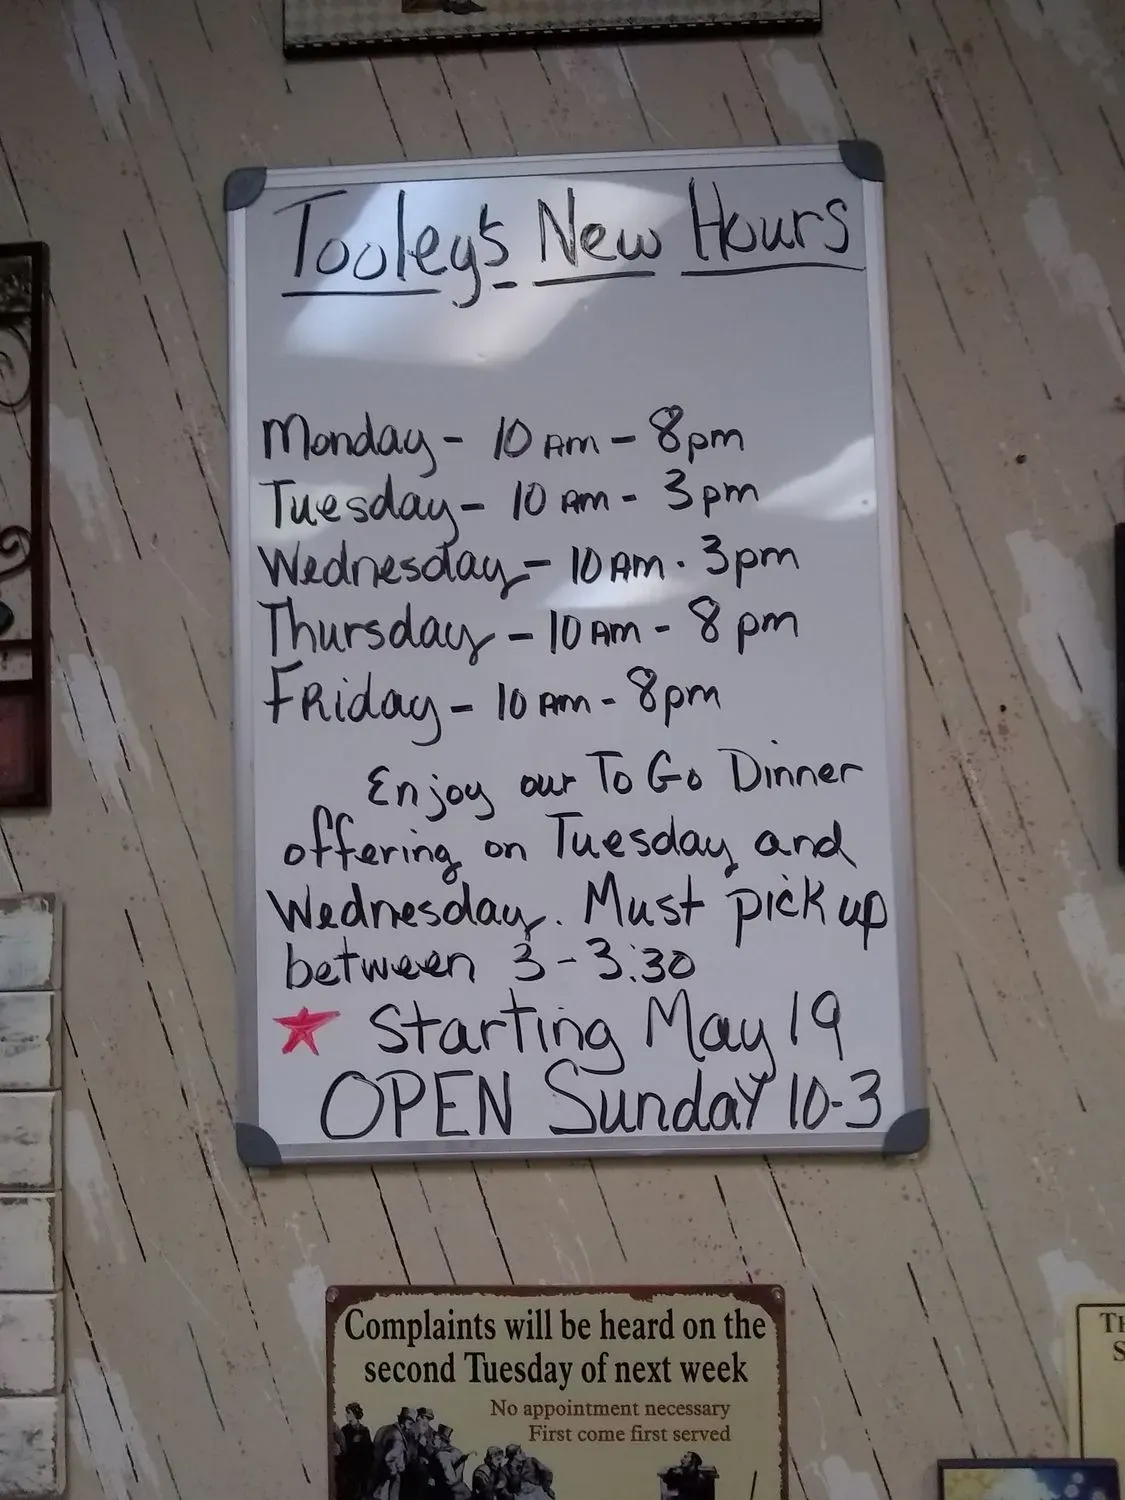 Tooley's New Hours
Monday - 10 AM - 8pm
Tuesday - 10 AM - 3pm
Wednesday - 10 AM - 3pm
Thursday - 10 AM - 8pm
Friday - 10 AM - 8pm
Enjoy our To Go Dinner
offering on Tuesday and
Wednesday. Must pick up
between 3-3:30
★ Starting May 19
OPEN Sunday 10-3
Complaints will be heard on the
second Tuesday of next week
No appointment necessary
First come first served